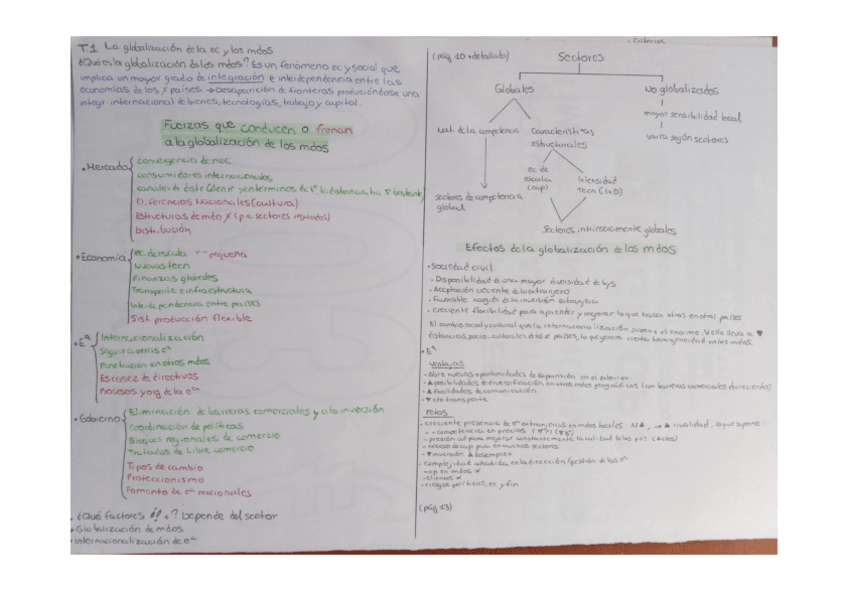 T.1 La globalización de la ec y los mdos
¿Qué es la globalización de los mdos? Es un fenómeno ec y social que
implica un mayor grado de integración e interdependencia entre las
economías de los ≠ países. → Desaparición de fronteras produciéndose una
integr. internacional de bienes, tecnologías, trabajo y capital.
Fuerzas que conducen o frenan
a la globalización de los mdos
• Mercado
convergencia de nec
consumidores internacionales
canales de distr
Diferencias Nacionales (cultura)
Estructuras de mdo ≠ (p.e. sectores regulados)
Distribución
• Economía
EC de escala pequeña
Nuevas tecn
Finanzas globales
Transporte e infraestructura
Interdependencia entre países
Sist. producción flexible
• Eª
Internacionalización
Seguir a otras eª
Penetración en otros mdos
Escasez de directivos
Procesos y org de la eª
• Gobierno
Eliminación de barreras comerciales y a la inversión
Coordinación de políticas
Bloques regionales de comercio
Tratados de Libre comercio
Tipos de cambio
Proteccionismo
Fomento de eªˢ nacionales
• ¿Qué factores +? Depende del sector
• Globalización de mdos
• Internacionalización de eªˢ
Criterios
(pág 10 + detallado)
Sectores
Globales
No globalizados
mayor sensibilidad local
varía según sectores
Nat. de la competencia
Características
estructurales
ec de
escala
(cap)
Intensidad
Tecn (I+D)
sectores de competencia
global
Sectores intrínsecamente globales
Efectos de la globalización de los mdos
• Sociedad civil
- Disponibilidad de una mayor diversidad de bys
- Aceptación creciente de lo extranjero
- Favorable acogida de la inversión extranjera
- Creciente flexibilidad para aprender y mejorar lo que hacen otros en otros países
El cambio social y cultural que la internacionalización supone es enorme. Y ello lleva a ▼
distancias socio-culturales entre países, lo que genera cierta homogeneidad en los mdos.
• Eª
ventajas
- Abre nuevas oportunidades de expansión en el exterior
- ▲ posibilidades de diversificación en otros mdos geográficos (con barreras comerciales decrecientes)
- ▲ facilidades de comunicación
- ▼ cte transporte
retos
- creciente presencia de eª extranjeras en mdos locales → ▲ rivalidad, lo que supone:
- + competencia en precios
- presión para mejorar constantemente la calidad de los
- exceso de cap prod en muchos sectores
- ▼ inversión ▲ desempleo
- Complejidad añadida en la dirección/gestión de las eªˢ
- op en mdos ≠
- clientes ≠
- riesgos políticos, ec y fin
(pág 13)